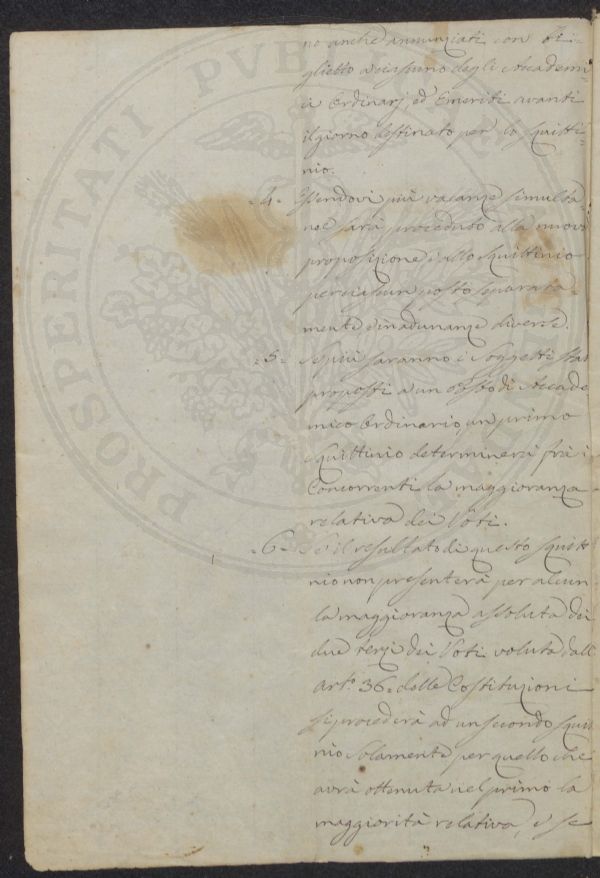 no anche annunziati con bi=
glietto a ciascuno degli Accademi=
ci Ordinarj, ed Emeriti avanti
il giorno destinato per lo squitti=
nio.
=4= Essendovi più vacanze simulta=
nee sarà proceduto alla nuova
proposizione, e allo squittinio
per ciascun posto separata=
mente e in adunanze diverse.
=5= Se più saranno i Soggetti stati
proposti a un posto di Accade
mico Ordinario, un primo
squittinio determinerà frà i
Concorrenti la maggioranza
relativa dei Voti.
=6= Se il resultato di questo squitti
nio non presenterà per alcun
la maggioranza assoluta dei
due terzi dei Voti voluta dall
Art.° 36= delle Costituzioni
si procederà ad un secondo squit
nio solamente per quello che
avrà ottenuta nel primo la
maggiorità relativa, e se
PROSPERITATI PVBLICAE